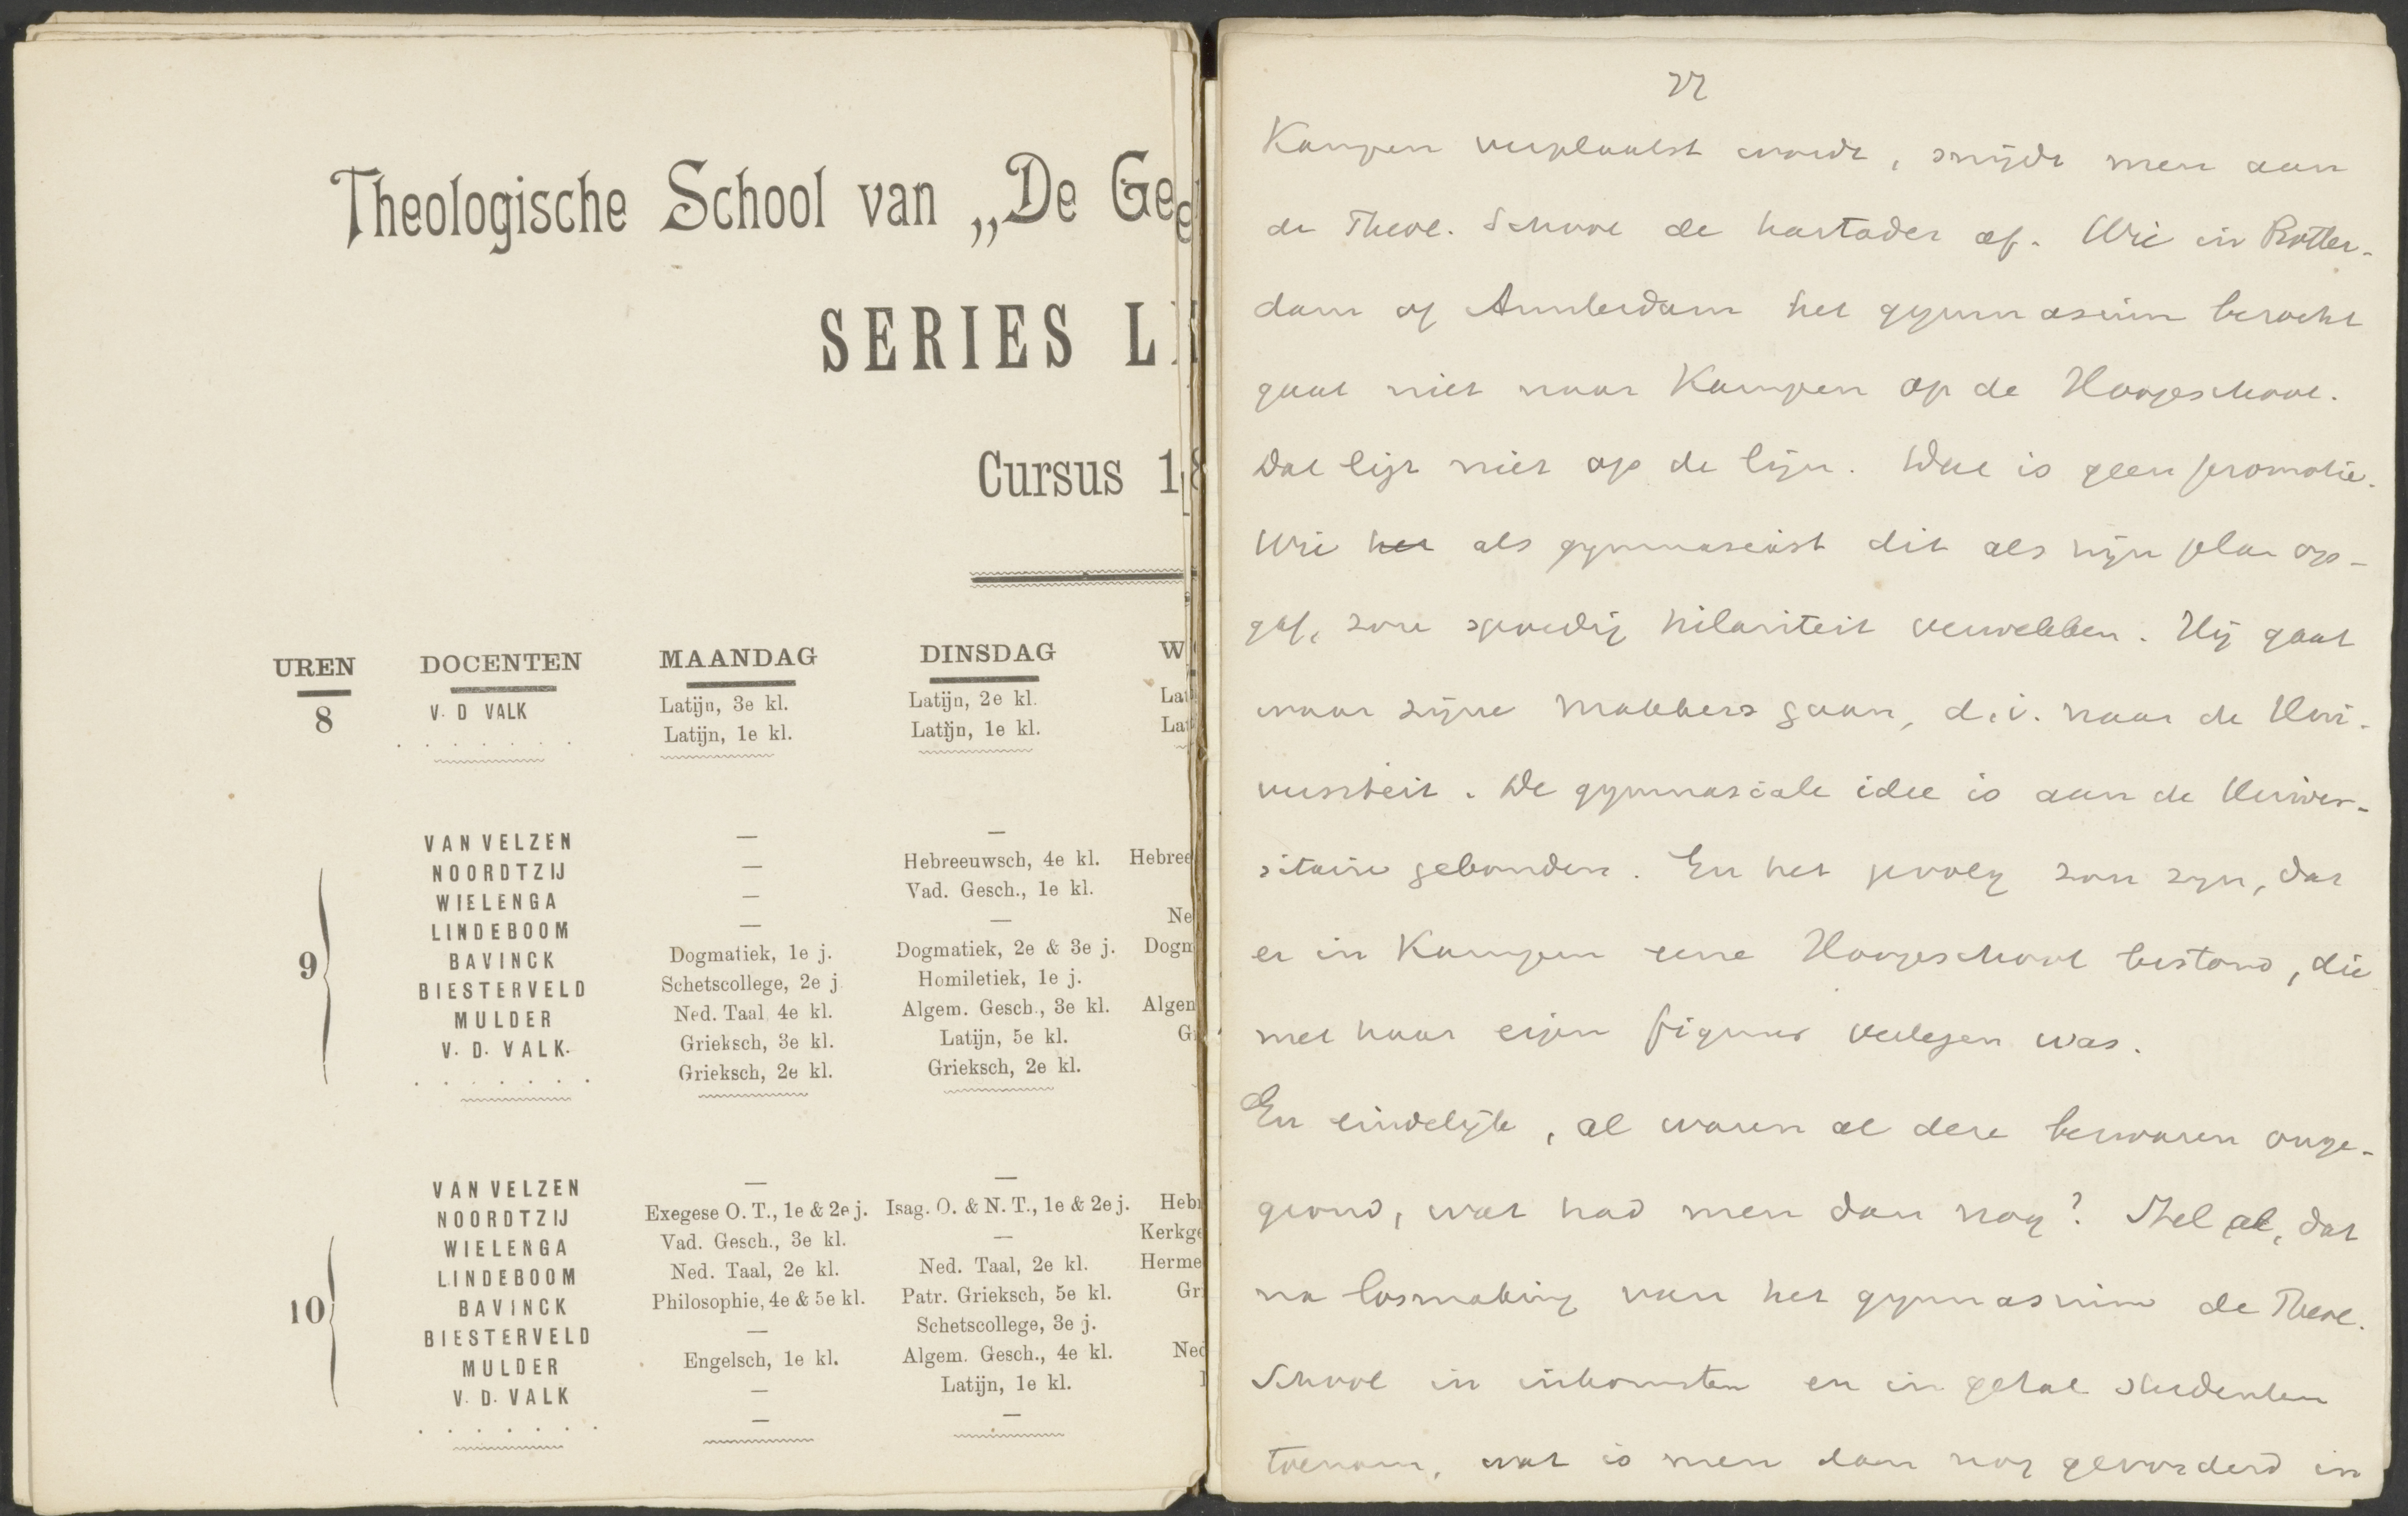 Theologische School van „De Ge
SERIES L
Cursus 1
UREN DOCENTEN MAANDAG DINSDAG W
8 V. D VALK Latijn, 3e kl. Latijn, 2e kl. Lat
. . . . . . . Latijn, 1e kl. Latijn, 1e kl. Lat
9
VAN VELZEN — —
NOORDTZIJ — Hebreeuwsch, 4e kl. Hebree
WIELENGA — Vad. Gesch., 1e kl.
LINDEBOOM — — Ne
BAVINCK Dogmatiek, 1e j. Dogmatiek, 2e & 3e j. Dogm
BIESTERVELD Schetscollege, 2e j Homiletiek, 1e j.
MULDER Ned. Taal 4e kl. Algem. Gesch., 3e kl. Algem
V. D. VALK. Grieksch, 3e kl. Latijn, 5e kl. G
. . . . . . . Grieksch, 2e kl. Grieksch, 2e kl.
10
VAN VELZEN — —
NOORDTZIJ Exegese O. T., 1e & 2e j. Isag. O. & N. T., 1e & 2e j. Heb
WIELENGA Vad. Gesch., 3e kl. — Kerkge
LINDEBOOM Ned. Taal, 2e kl. Ned. Taal, 2e kl. Herme
BAVINCK Philosophie, 4e & 5e kl. Patr. Grieksch, 5e kl. Gr
BIESTERVELD — Schetscollege, 3e j.
MULDER Engelsch, 1e kl. Algem. Gesch., 4e kl. Ned
V. D. VALK — Latijn, 1e kl.
. . . . . . . — —
Kampen verplaatst wordt, snijdt men aan
de Theol. School de hartader af. Wie in Rotter-
dam of Amsterdam het gymnasium bezocht
gaat niet naar Kampen op de Hoogeschool.
Dat ligt niet op de lijn. Dat is geen promotie.
Wie het als gymnasiast dit als zijn plan op-
gaf, zou spoedig hilariteit verwekken. Hij gaat
waar zijne makkers gaan, d.i. naar de Uni-
versiteit. De gymnasiale idee is aan de Univer-
sitaire gebonden. En het gevolg zou zijn, dat
er in Kampen eene Hoogeschool bestond, die
met haar eigen figuur verlegen was.
En eindelijk, al waren al deze bezwaren onge-
grond, wat had men dan nog? Stel al, dat
na losmaking van het gymnasium de Theol.
School in inkomsten en in getal studenten
toenam, wat is men dan nog gevorderd in